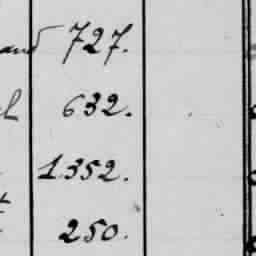 and 727.
632.
1352.
250.